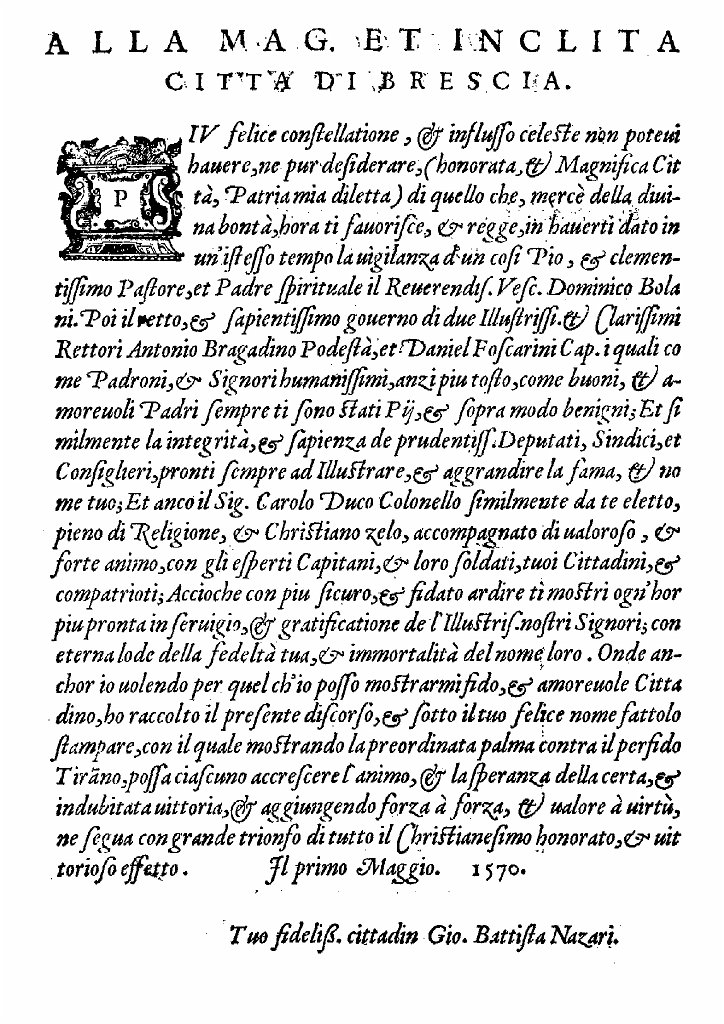 ALLA MAG. ET INCLITA
CITTA DI BRESCIA.
PIV felice constellatione, & influsso celeste non poteui
hauere, ne pur desiderare, (honorata, & Magnifica Cit
tà, Patria mia diletta) di quello che, mercè della diui-
na bontà, hora ti fauorisce, & regge, in hauerti dato in
un'istesso tempo la uigilanza d'un cosi Pio, & clemen-
tissimo Pastore, et Padre spirituale il Reuerendis. Vesc. Dominico Bola
ni. Poi il retto, & sapientissimo gouerno di due Illustrissi. & Clarissimi
Rettori Antonio Bragadino Podestà, et Daniel Foscarini Cap. i quali co
me Padroni, & Signori humanissimi, anzi piu tosto, come buoni, & a-
moreuoli Padri sempre ti sono stati Pij, & sopra modo benigni; Et si
milmente la integrità, & sapienza de prudentiss. Deputati, Sindici, et
Consiglieri, pronti sempre ad Illustrare, & aggrandire la fama, & no
me tuo; Et anco il Sig. Carolo Duco Colonello similmente da te eletto,
pieno di Religione, & Christiano zelo, accompagnato di ualoroso, &
forte animo, con gli esperti Capitani, & loro soldati, tuoi Cittadini, &
compatrioti; Accioche con piu sicuro, & fidato ardire ti mostri ogn'hor
piu pronta in seruigio, & gratificatione de l'Illustris. nostri Signori; con
eterna lode della fedeltà tua, & immortalità del nome loro. Onde an-
chor io uolendo per quel ch'io posso mostrarmi fido, & amoreuole Citta
dino, ho raccolto il presente discorso, & sotto il tuo felice nome fattolo
stampare, con il quale mostrando la preordinata palma contra il perfido
Tirãno, possa ciascuno accrescere l'animo, & la speranza della certa, &
indubitata uittoria, & aggiungendo forza à forza, & ualore à uirtù,
ne segua con grande trionfo di tutto il Christianesimo honorato, & uit
torioso effetto. Il primo Maggio. 1570.
Tuo fideliss. cittadin Gio. Battista Nazari.